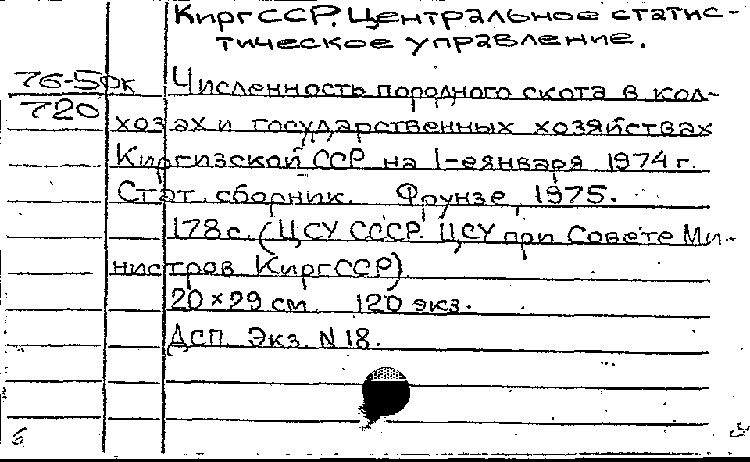 КиргССР. Центральное статис-
тическое управление.
76-5рк Численность породного скота в кол-
720
хозах и государственных хозяйствах
Киргизской ССР на 1-е января 1974 г.
Стат. сборник. Фрунзе, 1975.
178 с. (ЦСУ СССР. ЦСУ при Совете Ми-
нистров КиргССР)
20×29 см. 120 экз.
ДСП. Экз. N 18.
б